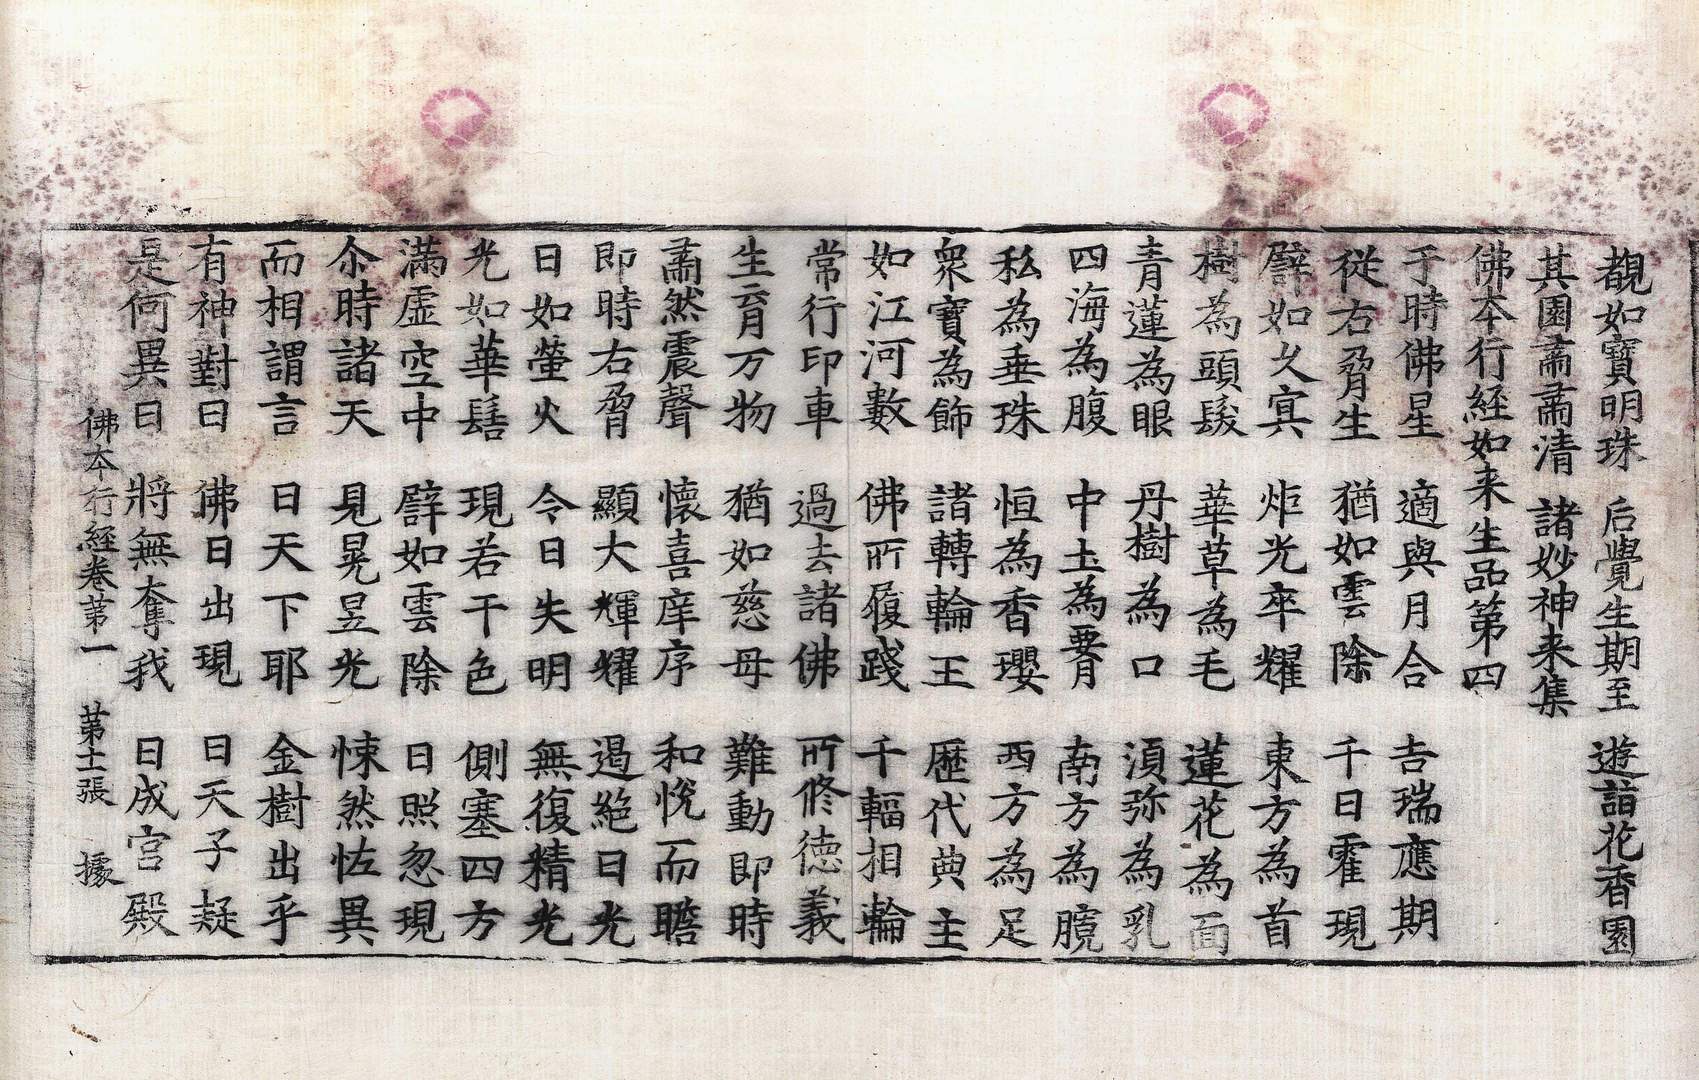 覩如寶明珠 后覺生期至 遊詣花香園
其園肅肅清 諸妙神来集
佛本行經如来生品第四
于時佛星 適與月合 吉瑞應期
從右脅生 猶如雲除 千日霍現
譬如久㝠 炬光卒耀 東方為首
樹為頭髮 華草為毛 蓮花為面
青蓮為眼 丹樹為口 湏弥為乳
四海為腹 中土為𦝫 南方為臗
私為垂珠 恒為香瓔 西方為足
衆寶為飾 諸轉輪王 歷代典主
如江河數 佛所履踐 千輻相輪
常行印車 過去諸佛 所修德義
生育万物 猶如慈母 難動即時
肅然震聲 懷喜庠序 和悅而瞻
即時右脅 顯大輝耀 遏絕日光
日如螢火 令日失明 無復精光
光如華髻 現若干色 側塞四方
滿虛空中 譬如雲除 日照忽現
尒時諸天 見晃昱光 悚然恠異
而相謂言 日天下耶 金樹出乎
有神對曰 佛日出現 日天子疑
是何異日 將無奪我 日成宮殿
佛本行經卷第一 第十二張 據